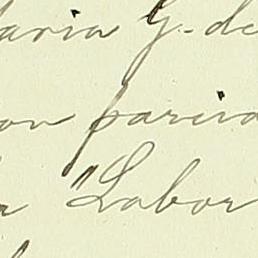 aria G. de
on parida
a "Labor